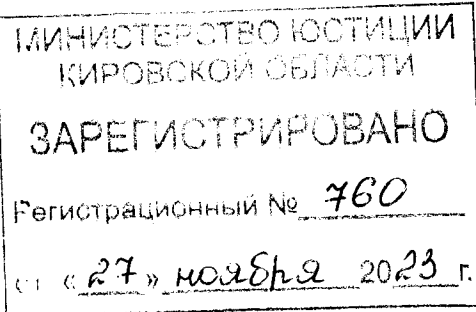 МИНИСТЕРСТВО ЮСТИЦИИ
КИРОВСКОЙ ОБЛАСТИ
ЗАРЕГИСТРИРОВАНО
Регистрационный № 760
от «27» ноября 2023 г.